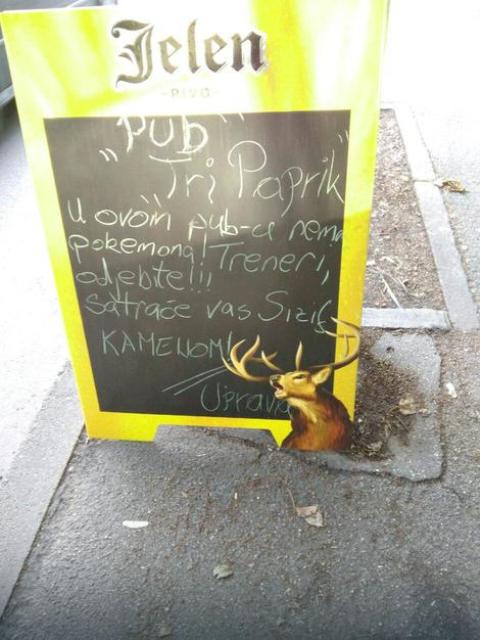 Jelen
-PIVO-
„Pub
Tri Paprik"
U ovom pub-u nema
pokemona! Treneri,
odjebite!!!
Satraće vas Sizif
KAMENOM!
Uprava